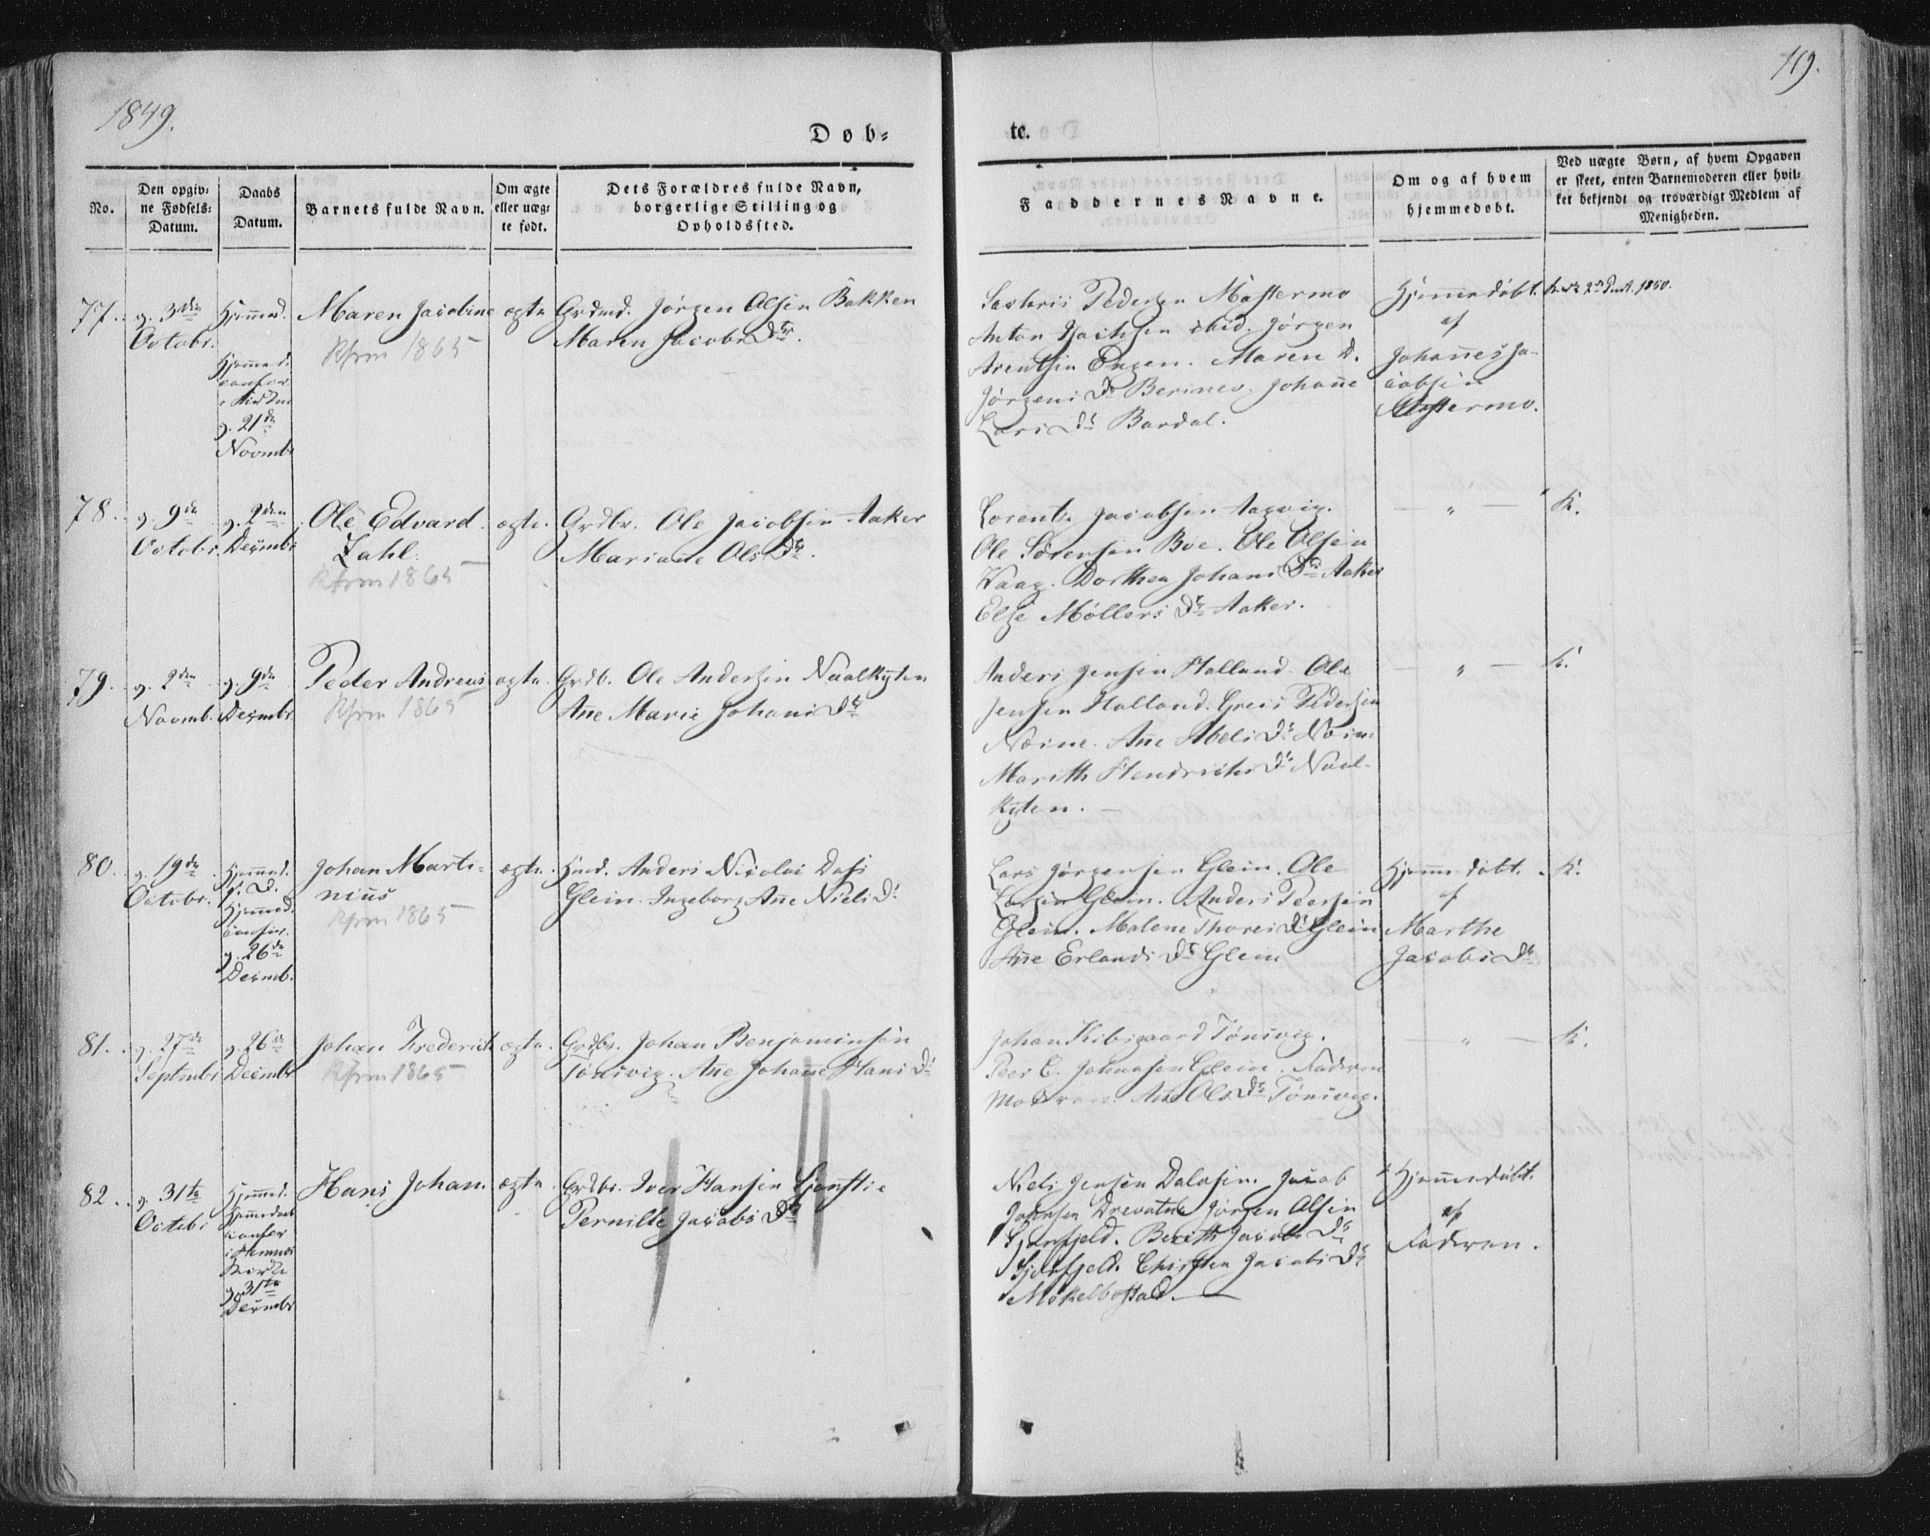 1849.
119.
Døb-
te.
No.
Den opgiv-
ne Fødsels-
Datum.
Daabs
Datum.
Barnets fulde Navn.
Om ægte
eller uæg-
te født.
Dets Forældres fulde Navn,
borgerlige Stilling og
Opholdssted.
Faddernes Navne.
Om og af hvem
hjemmedøbt.
Ved uægte Børn, af hvem Opgaven
er skeet, enten Barnemoderen eller hvil-
ket bekjendt og troværdigt Medlem af
Menigheden.
77.
g. 3die
Octobr.
Hjemmed.
Hjemmed.
g. 21de
Novmbr
Maren Jacobine
Kfrm 1865
ægte
Grdmd. Jørgen Olsen Bakken
Maren Jacobs Dr.
Pedersen Mastermo
Anton ibid. Jørgen
Arentsen Engen. Maren D.
Jørgens Dr Johanne
Lars Dr Bardal.
Hjemmedøbt.
af
Johannes Ja-
cobsen
Mastermo.
78.
g. 9de
Octobr.
g. 2den
Decmbr
Ole Edvard
Zahl.
Kfrm 1865
ægte.
Grdbr. Ole Jacobsen Aaker
Mariane Ols Dr.
Lorents Jacobsen Aagvig.
Ole Sørensen Boe. Ole Olsen
Vaag. Dorthea Johans Dr Aaker
Else Møllers Dr Aaker.
— " —
K.
79.
g. 2den
Novmb.
g. 9de
Decmbr.
Peder Andreas
Kfrm 1865
ægte.
Grdb. Ole Andersen Naalkyten
Ane Marie Johans Dr
Anders Jensen Holland. Ole
Jensen Holland. Greis Pedersen
Ane Abels Dr
Marith Hendrichs Dr Naal-
kyten. —
— " —
K.
80.
g. 19de
Octobr.
Hjemmed.
g. D.
Hjemmed.
confir.
g. 26de
Decmb.
Johan Marti-
nius
Kfrm 1865
ægte.
Hmd. Anders Nicolai Dass
Glein. Ingeborg Ane Niels Dr
Lars Jørgensen Glein. Ole
Larsen Glein. Anders Peersen
Glein. Malene Thores Dr Glein
Ane Erlands Dr Glein
Hjemmedøbt.
af
Marthe
Jacobs Dr
K.
81.
g. 27de
Septmbr
g. 26de
Decmbr
Johan Frederick
Kfrm 1865
ægte.
Grdbr. Johan Benjaminsen
Tønsvig. Ane Johanne Hans Dr
Johan Kibsgaard Tønsvig.
Peer C. Johnsen Glein. Faderen
Moderen. Ols Dr Tønsvig.
— " —
K.
82.
g. 31te
Octobr
Hjemmed.
Hjemmedaab
confir
Kirke
g. 31te
Decmbr
Hans Johan.
ægte
Grdbr. Iver Hansen
Pernille Jacobs Dr
Niels Jensen Dalosen. Jacob
Johnsen Drevatne Jørgen Olsen
Berith Jacobs Dr
Jacobs Dr
Møkelbostad. —
Hjemmedøbt.
af
Faderen.